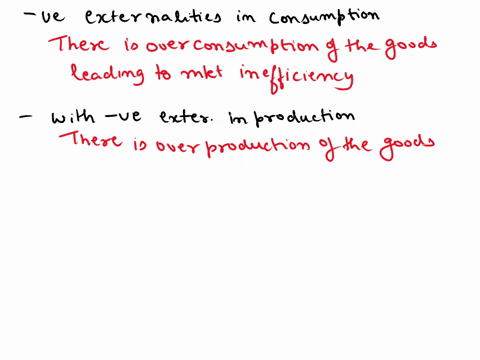 -ve externalities in consumption
There is overconsumption of the goods
leading to mkt inefficiency
- with -ve exter. in production
There is over production of the goods